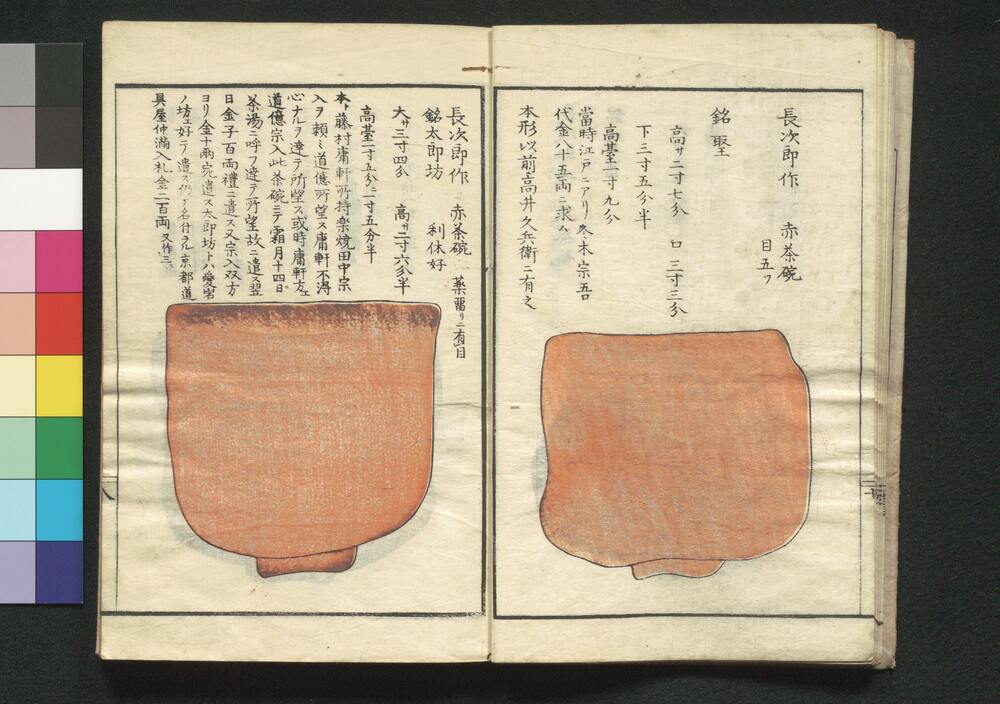 長次郎作　赤茶碗
目五ツ
銘聖
高サ二寸七分　口三寸三分
下三寸五分半
高臺一寸九分
當時江戸ニアリ冬木宗五口
代金八十五両ニ求ム
本形以前高井久兵衛ニ有之
長次郎作　赤茶碗　薬溜リニ有目
銘太郎坊　利休好
大サ三寸四分　高サ二寸六分半
高臺一寸五分ニ一寸五分半
本ト藤村庸軒所持楽焼田中宗
入ヲ頼ミ道億所望ス庸軒不得
心ナルヲ達テ所望ス或時庸軒方エ
道億宗入此茶碗ニテ霜月十四日
茶湯ニ呼フ達テ所望故ニ遣ス翌
日金子百両禮ニ遣ス又宗入双方
ヨリ金十両宛遣ス太郎坊トハ愛宕
ノ坊エ好テ遣ス名付ラル京都道
具屋仲満入札金二百両